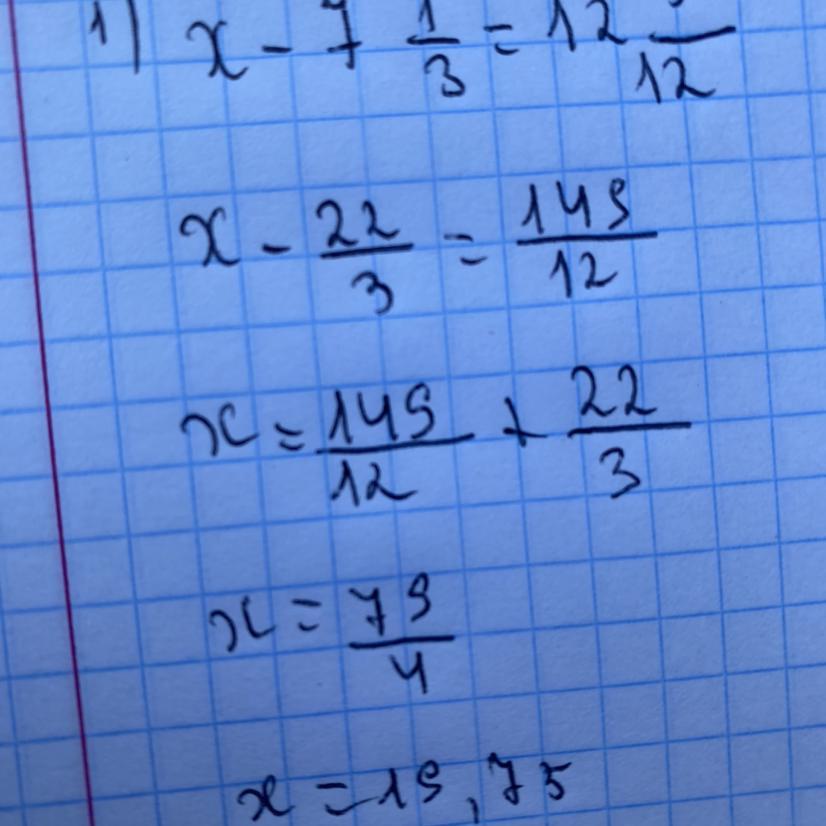 1) x - 7 1/3 = 12 /12
x - 22/3 = 149/12
x = 149/12 + 22/3
x = 79/4
x = 19,75